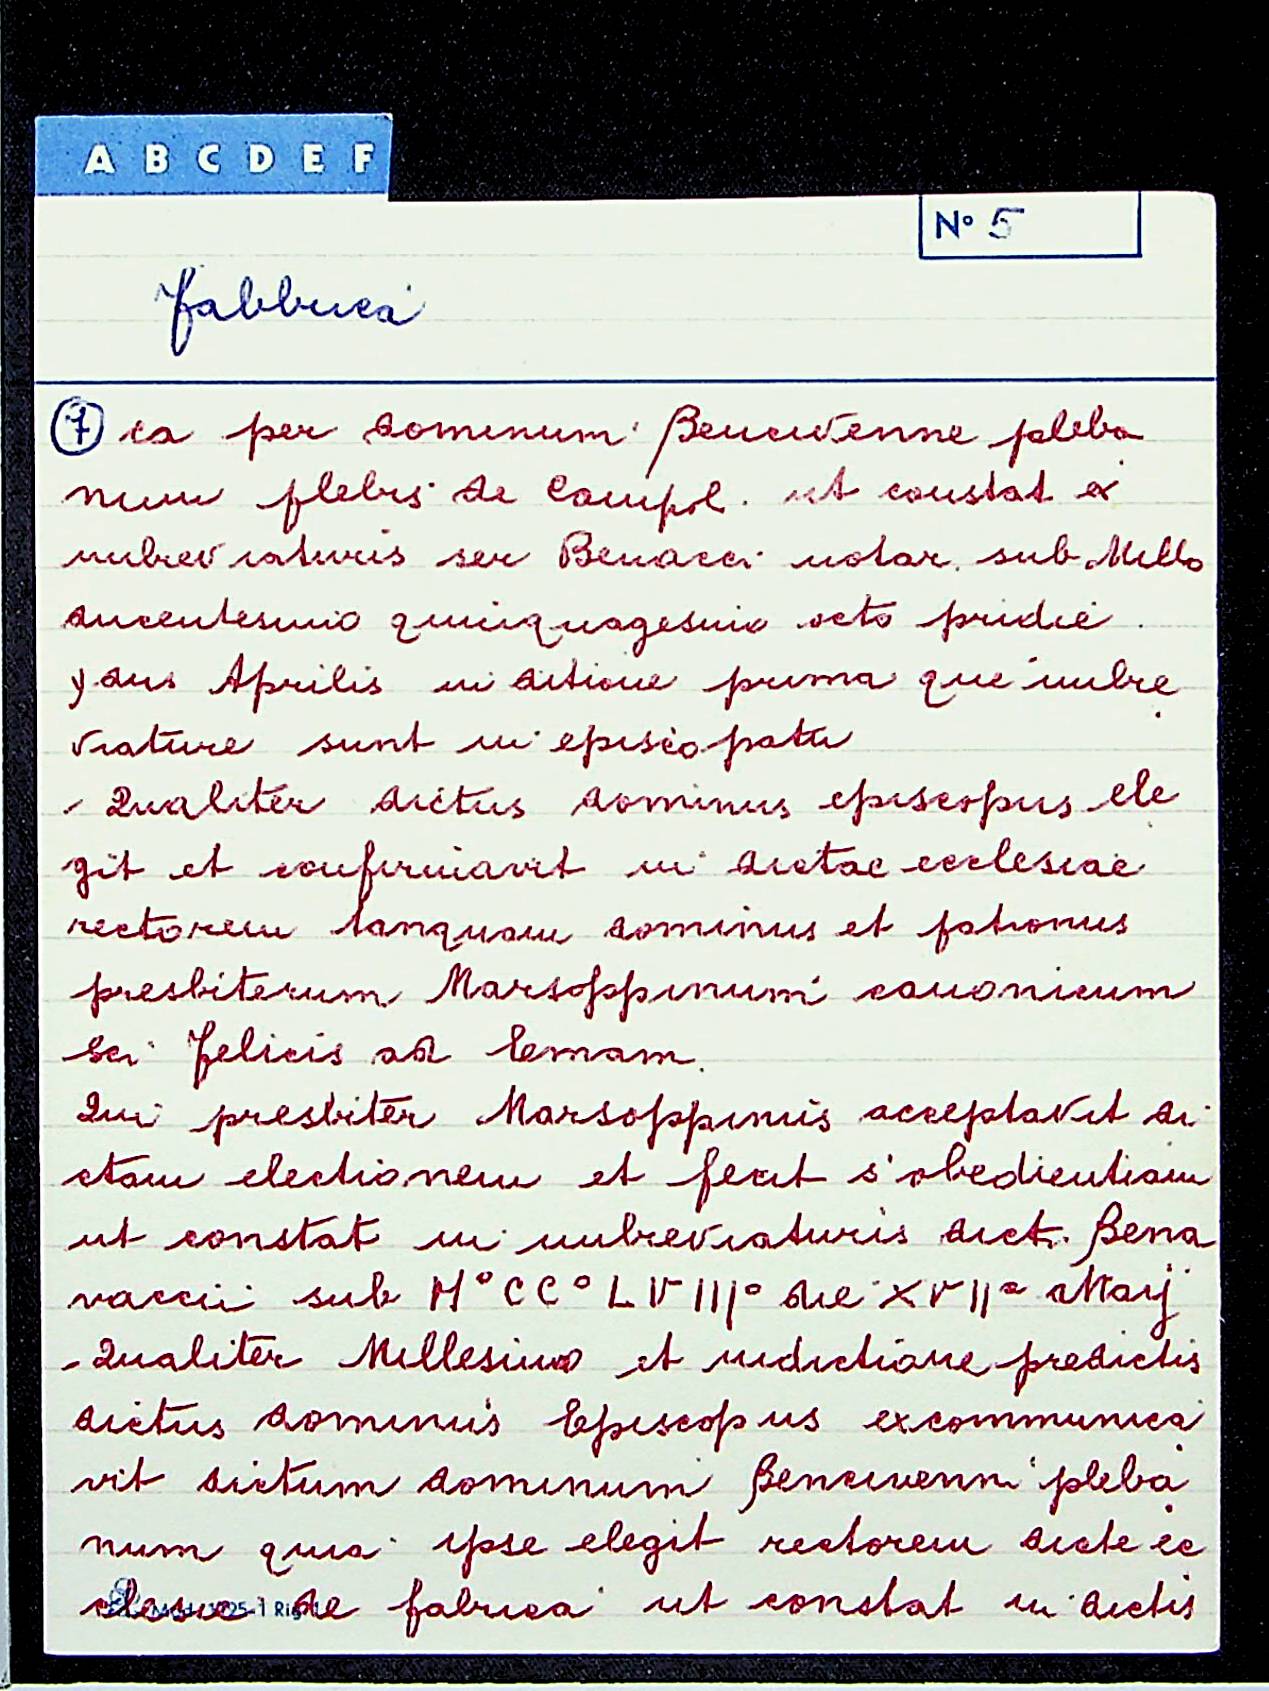 A B C D E F
N° 5
Fabbrica
7 ca per dominum Bencivenne pleba
num plebis de Campol. ut constat ex
imbreviaturis ser Benacci notar. sub Millo
ducentesimo quinquagesimo octo pridie
ydus Aprilis inditione prima que imbre
viature sunt in episcopatu
- Qualiter dictus dominus episcopus ele
git et confirmavit in dictae ecclesiae
rectorem tanquam dominus et patronus
presbiterum Marsoppinum canonicum
Sci Felicis ad Emam.
Qui presbiter Marsoppinus acceptavit di
ctam electionem et fecit s'obedientiam
ut constat in imbreviaturis dict. Bena
vaccii sub M°CC°LVIII° die XVIIa Maij
- Qualiter Millesimo et indictione predictis
dictus dominus Episcopus excommunica
vit dictum dominum Bencivenni pleba
num quia ipse elegit rectorem dicte ec
clesie de fabrica ut constat in dictis